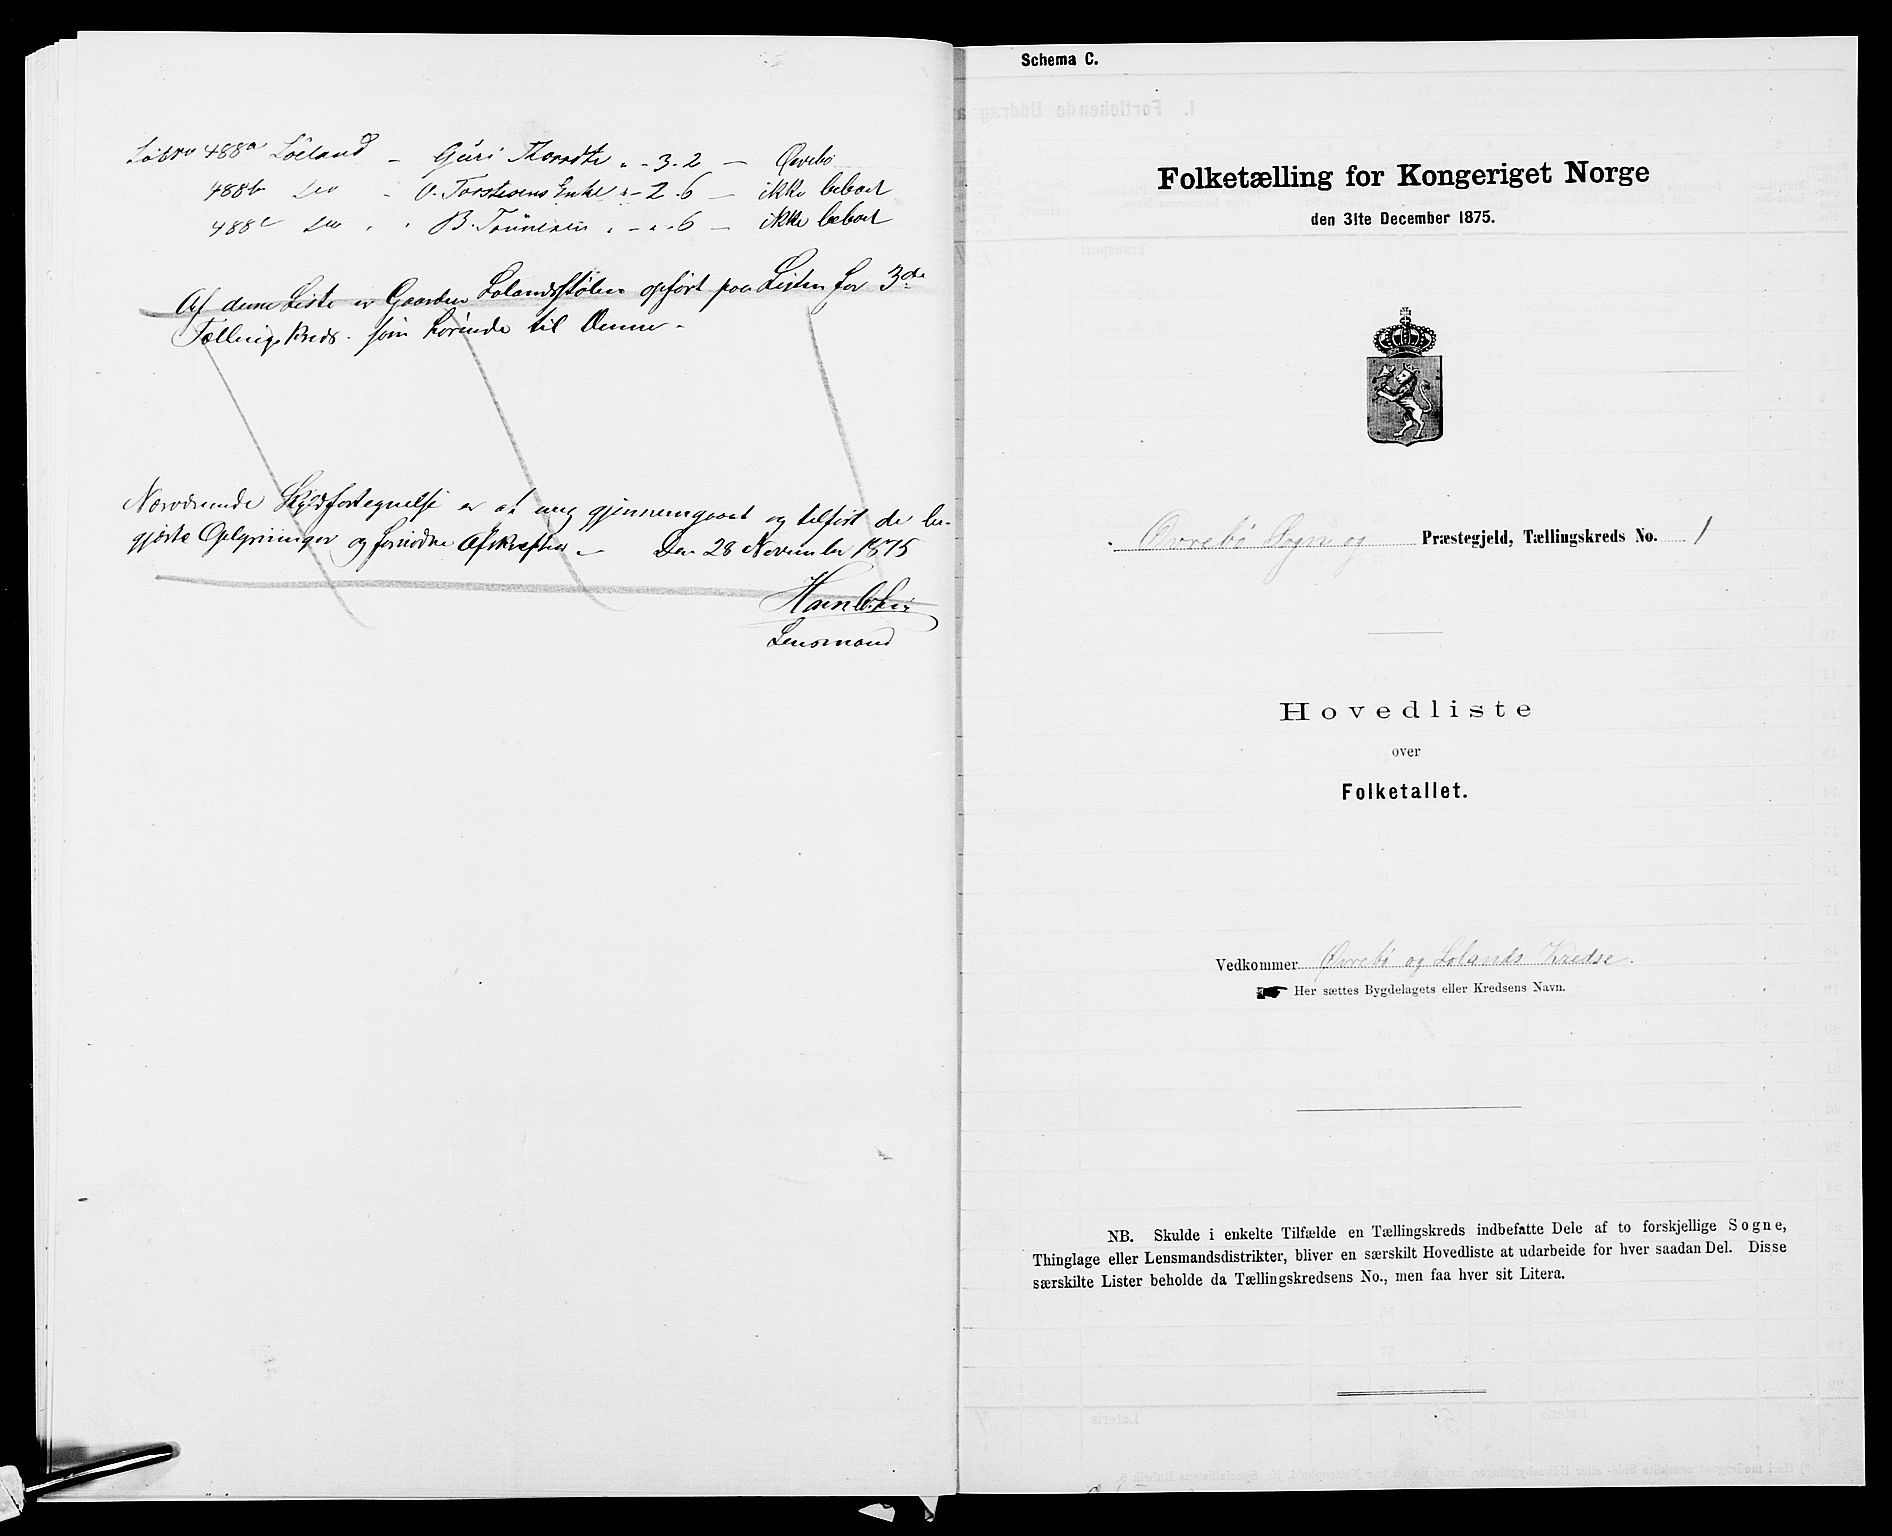 Løbno 488a Löeland - Guri Thorsdtr " - 3. 2 - Øvrebø
488b do - O. Torstensens Enke " - 2. 6 - ikke beboet
488c do " " B. Tönnesen " - " - 6 - ikke beboet
Af denne Liste er Gaarden Lolandsstølen opført paa Listen for 3de
Tællingskreds som hørende til denne -
Nærværende Skyldfortegnelse er af mig gjennemgaaet og tilført de be-
gjærte Oplysninger og fornødne Afskrifter - Den 28 November 1875
Lensmand
Schema C.
Folketælling for Kongeriget Norge
den 31te December 1875.
Øvrebö Sogn og Præstegjeld, Tællingskreds No. 1
Hovedliste
over
Folketallet.
Vedkommer Øvrebö og Lolands Kredse.
Her sættes Bygdelagets eller Kredsens Navn.
NB. Skulde i enkelte Tilfælde en Tællingskreds indbefatte Dele af to forskjellige Sogne,
Thinglage eller Lensmandsdistrikter, bliver en særskilt Hovedliste at udarbeide for hver saadan Del. Disse
særskilte Lister beholde da Tællingskredsens No., men faa hver sit Litera.